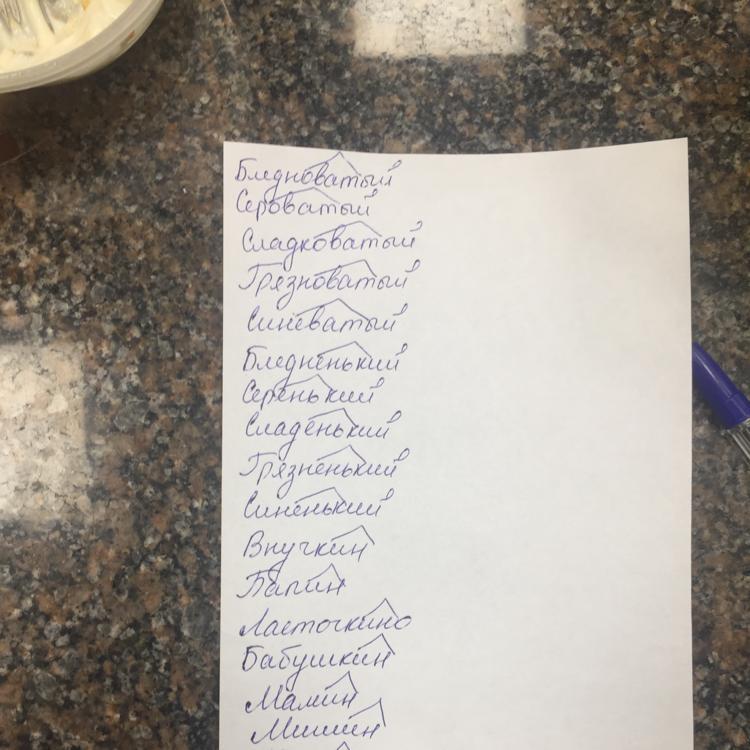 Бледноватый
Сероватый
Сладковатый
Грязноватый
Синеватый
Бледненький
Серенький
Сладенький
Грязненький
Синенький
Внучкин
Папин
Ласточкино
Бабушкин
Мамин
Мишин